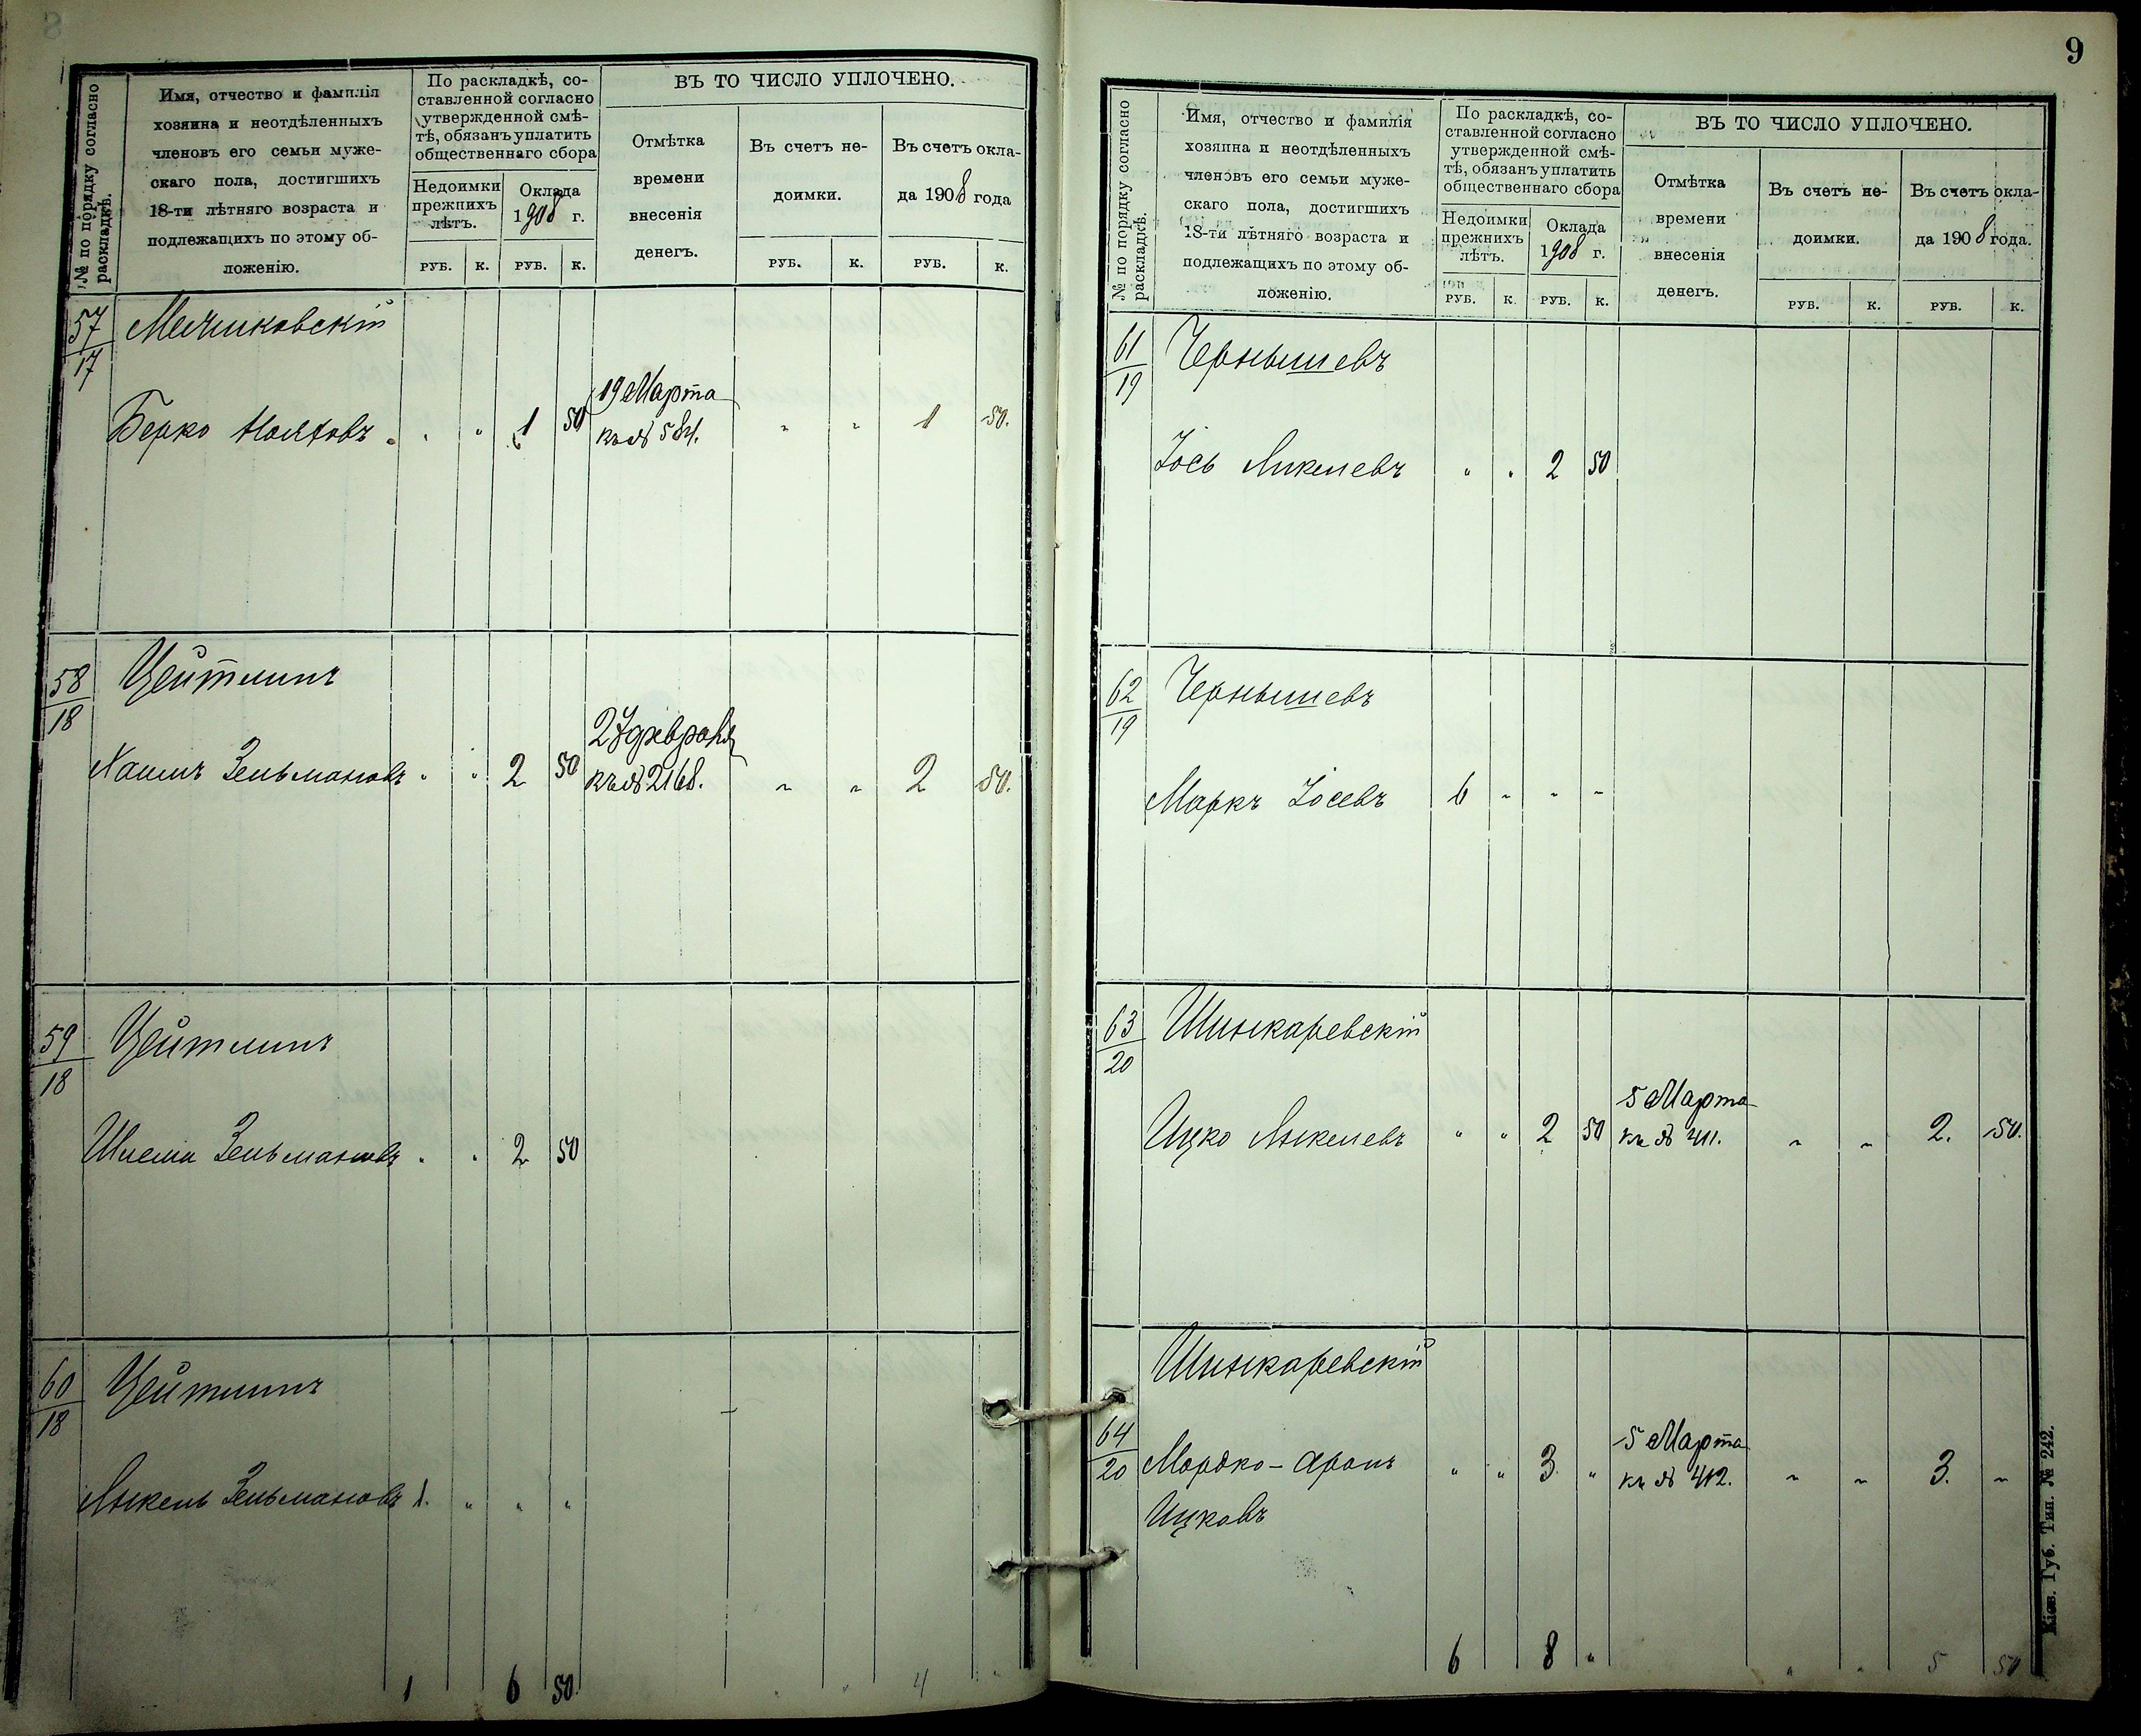 № по порядку согласно
раскладкѣ.
Имя, отчество и фамилія
хозяина и неотдѣленныхъ
членовъ его семьи муже-
скаго пола, достигшихъ
18-ти лѣтняго возраста и
подлежащихъ по этому об-
ложенію.
По раскладкѣ, со-
ставленной согласно
утвержденной смѣ-
тѣ, обязанъ уплатить
общественнаго сбора
Недоимки
прежнихъ
лѣтъ.
Оклада
1908 г.
РУБ. К. РУБ. К.
ВЪ ТО ЧИСЛО УПЛОЧЕНО.
Отмѣтка
времени
внесенія
денегъ.
Въ счетъ не-
доимки.
РУБ. К.
Въ счетъ окла-
да 1908 года
РУБ. К.
57
17
19 Марта
Берко " " 1 50 къ № 584. " " 1 50.
58 Цейтлинъ
18
27 февраля
Хаимъ Зельмановъ " " 2 50 къ № 2168. " " 2 50.
59 Цейтлинъ
18
Шлема Зельмановъ " " 2 50
60 Цейтлинъ
18
Янкель Зельмановъ 1. " " "
1 6 50 " " 4 "
9
№ по порядку согласно
раскладкѣ.
Имя, отчество и фамилія
хозяина и неотдѣленныхъ
членовъ его семьи муже-
скаго пола, достигшихъ
18-ти лѣтняго возраста и
подлежащихъ по этому об-
ложенію.
По раскладкѣ, со-
ставленной согласно
утвержденной смѣ-
тѣ, обязанъ уплатить
общественнаго сбора
Недоимки
прежнихъ
лѣтъ.
Оклада
1908 г.
РУБ. К. РУБ. К.
ВЪ ТО ЧИСЛО УПЛОЧЕНО.
Отмѣтка
времени
внесенія
денегъ.
Въ счетъ не-
доимки.
РУБ. К.
Въ счетъ окла-
да 1908 года.
РУБ. К.
61 Чернышевъ
19
Іось Янкелевъ " " 2 50
62 Чернышевъ
19
Маркъ Іосевъ 6 " " "
63 Шинкаревскій
20
5 Марта
Ицко Янкелевъ " " 2 50 къ № 411. " " 2. 50.
Шинкаревскій
64 5 Марта
20 Мордко-Аронъ " " 3 " къ № 412. " " 3. "
Ицковъ
6 8 " " " 5 50
Кіев. Губ. Тип. № 242.